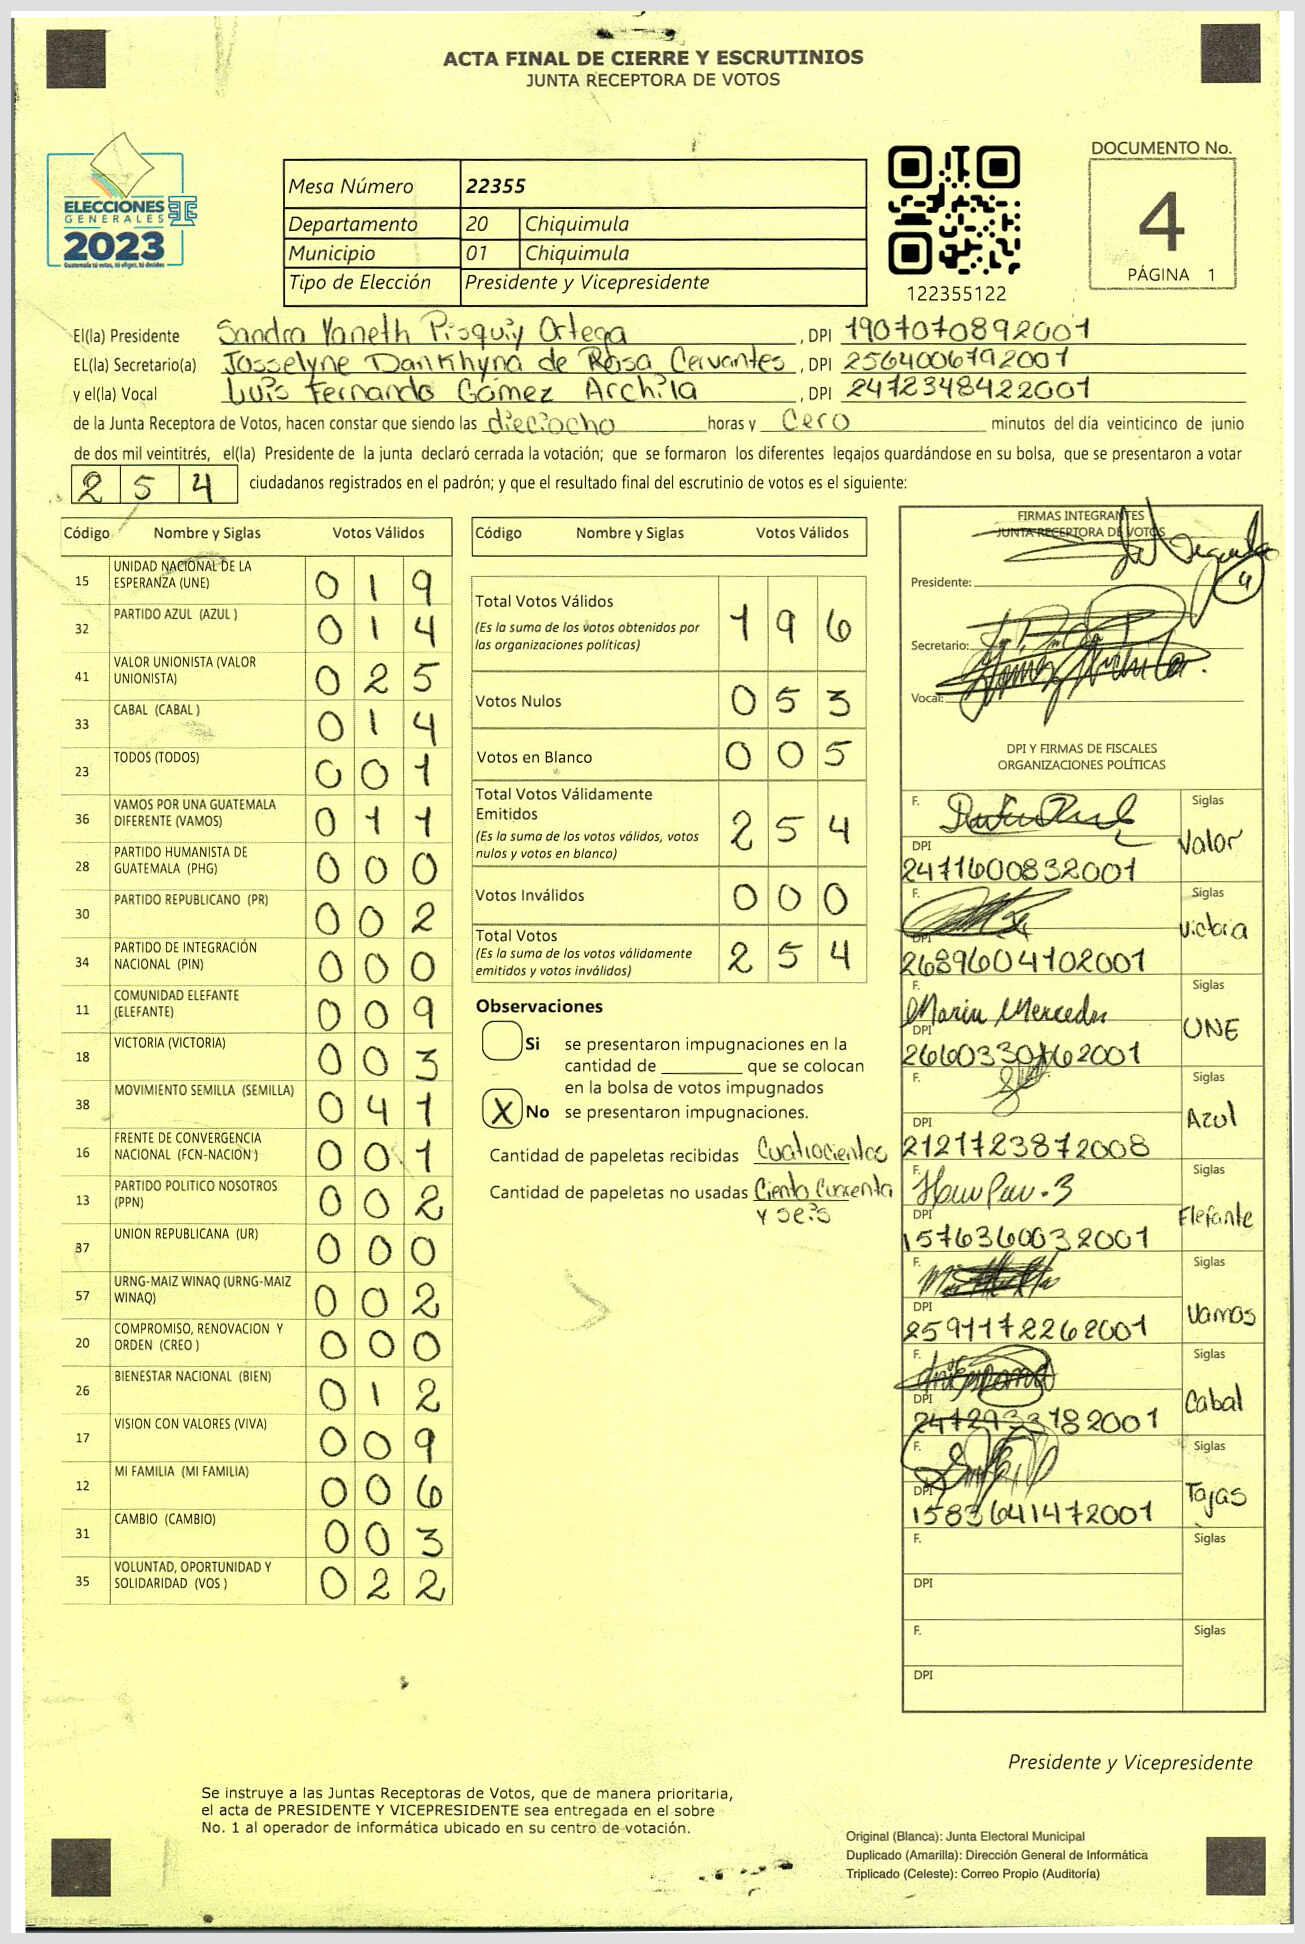 ACTA FINAL DE CIERRE Y ESCRUTINIOS
JUNTA RECEPTORA DE VOTOS
ELECCIONES
GENERALES
2023
Guatemala tú votas, tú eliges, tú decides
Mesa Número 22355
Departamento 20 Chiquimula
Municipio 01 Chiquimula
Tipo de Elección Presidente y Vicepresidente
122355122
DOCUMENTO No.
4
PÁGINA 1
El(la) Presidente Sandra Yaneth Pisquiy Ortega, DPI 1907070892001
EL(la) Secretario(a) Josselyne Dankhyna de Rosa Cervantes, DPI 2564006792001
y el(la) Vocal Luis Fernando Gómez Archila, DPI 2472348422001
de la Junta Receptora de Votos, hacen constar que siendo las dieciocho horas y Cero minutos del día veinticinco de junio
de dos mil veintitrés, el(la) Presidente de la junta declaró cerrada la votación; que se formaron los diferentes legajos guardándose en su bolsa, que se presentaron a votar
254 ciudadanos registrados en el padrón; y que el resultado final del escrutinio de votos es el siguiente:
Código Nombre y Siglas Votos Válidos
15 UNIDAD NACIONAL DE LA ESPERANZA (UNE) 019
32 PARTIDO AZUL (AZUL ) 014
41 VALOR UNIONISTA (VALOR UNIONISTA) 025
33 CABAL (CABAL ) 014
23 TODOS (TODOS) 001
36 VAMOS POR UNA GUATEMALA DIFERENTE (VAMOS) 011
28 PARTIDO HUMANISTA DE GUATEMALA (PHG) 000
30 PARTIDO REPUBLICANO (PR) 002
34 PARTIDO DE INTEGRACIÓN NACIONAL (PIN) 000
11 COMUNIDAD ELEFANTE (ELEFANTE) 009
18 VICTORIA (VICTORIA) 003
38 MOVIMIENTO SEMILLA (SEMILLA) 041
16 FRENTE DE CONVERGENCIA NACIONAL (FCN-NACION ) 001
13 PARTIDO POLITICO NOSOTROS (PPN) 002
37 UNION REPUBLICANA (UR) 000
57 URNG-MAIZ WINAQ (URNG-MAIZ WINAQ) 002
20 COMPROMISO, RENOVACION Y ORDEN (CREO ) 000
26 BIENESTAR NACIONAL (BIEN) 012
17 VISION CON VALORES (VIVA) 009
12 MI FAMILIA (MI FAMILIA) 006
31 CAMBIO (CAMBIO) 003
35 VOLUNTAD, OPORTUNIDAD Y SOLIDARIDAD (VOS ) 022
Código Nombre y Siglas Votos Válidos
Total Votos Válidos 196
(Es la suma de los votos obtenidos por
las organizaciones políticas)
Votos Nulos 053
Votos en Blanco 005
Total Votos Válidamente
Emitidos 254
(Es la suma de los votos válidos, votos
nulos y votos en blanco)
Votos Inválidos 000
Total Votos 254
(Es la suma de los votos válidamente
emitidos y votos inválidos)
Observaciones
Si se presentaron impugnaciones en la
cantidad de ________ que se colocan
en la bolsa de votos impugnados
X No se presentaron impugnaciones.
Cantidad de papeletas recibidas Cuatrocientos
Cantidad de papeletas no usadas Ciento Cuarenta
y seis
FIRMAS INTEGRANTES
JUNTA RECEPTORA DE VOTOS
Presidente:
Secretario:
Vocal:
DPI Y FIRMAS DE FISCALES
ORGANIZACIONES POLÍTICAS
F. Siglas
DPI Valor
2471600832001
F. Siglas
DPI Victoria
2689604102001
F. Maria Mercedes Siglas
DPI UNE
F. Siglas
DPI Azul
2121723872008
F. Siglas
DPI Elefante
1576360032001
F. Siglas
DPI Vamos
2591172262001
F. Siglas
DPI Cabal
F. Siglas
DPI Tojas
1583641472001
F. Siglas
DPI
F. Siglas
DPI
Presidente y Vicepresidente
Se instruye a las Juntas Receptoras de Votos, que de manera prioritaria,
el acta de PRESIDENTE Y VICEPRESIDENTE sea entregada en el sobre
No. 1 al operador de informática ubicado en su centro de votación.
Original (Blanca): Junta Electoral Municipal
Duplicado (Amarilla): Dirección General de Informática
Triplicado (Celeste): Correo Propio (Auditoría)